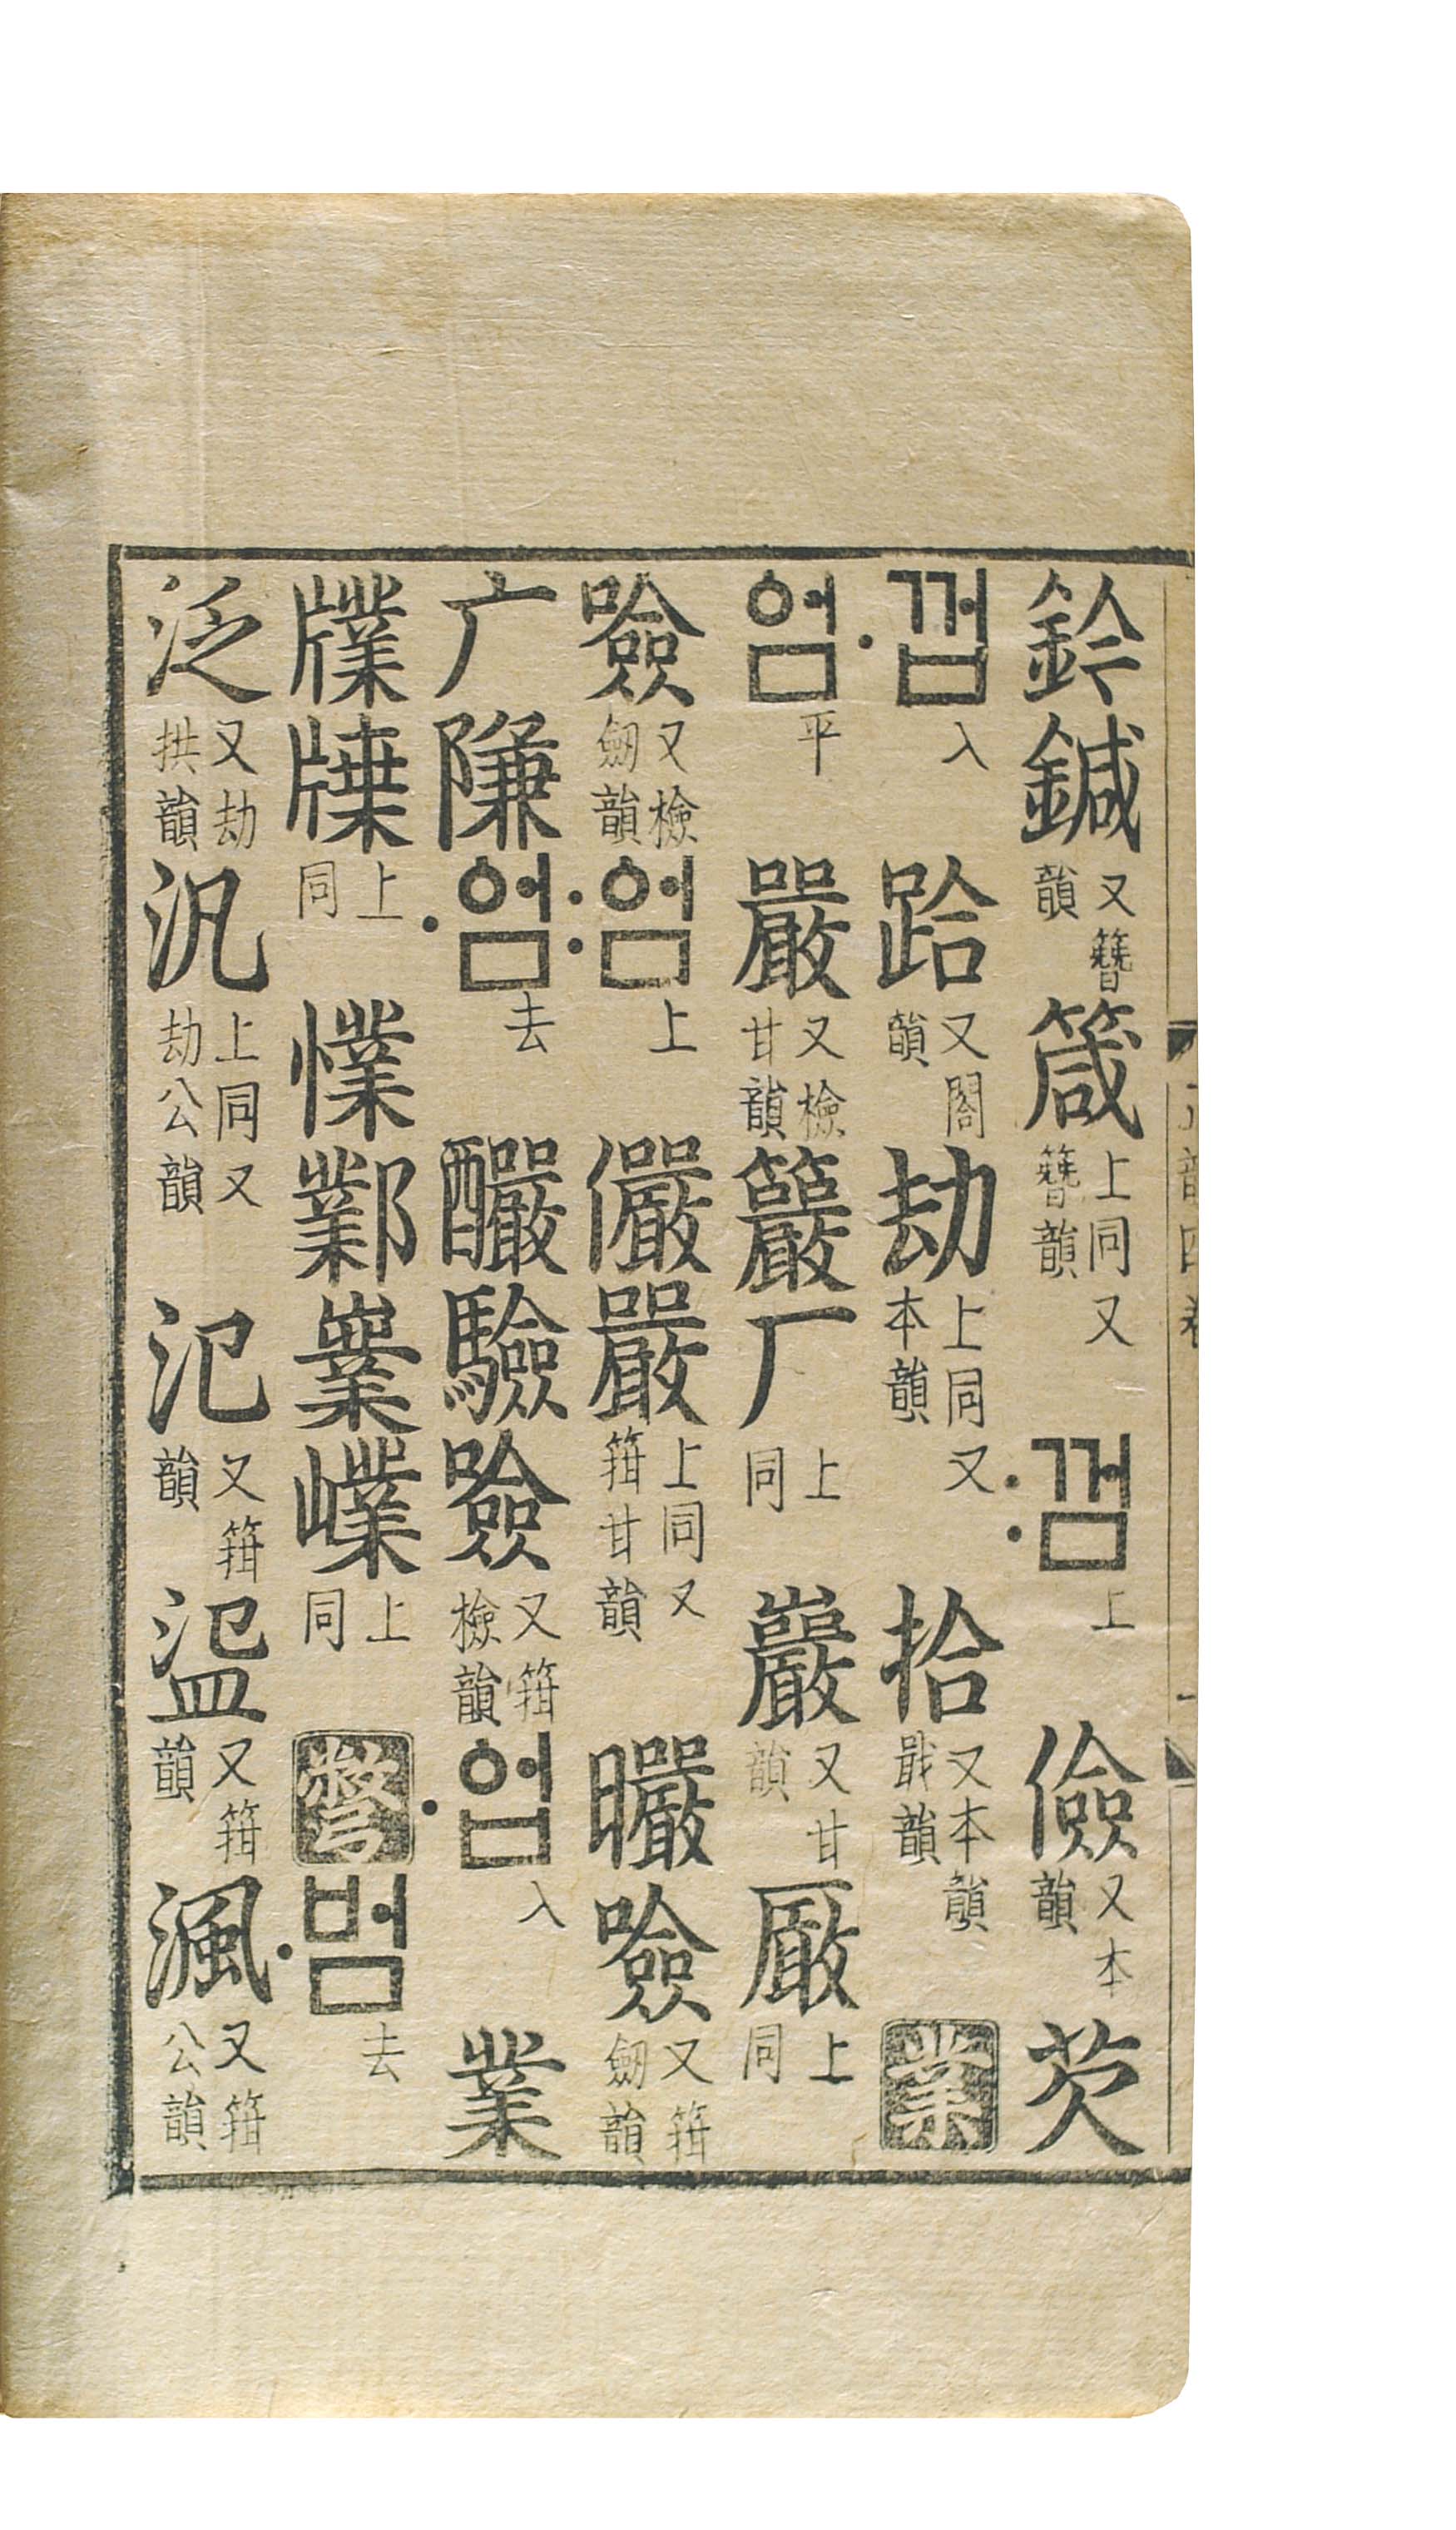 鈐鍼又簪韻箴上同又簪韻껌上儉又本韻芡
껍入跲又閤韻劫上同又本韻拾又本韻戢韻業
엄平嚴又檢甘韻籯厂上同巖又甘韻厰上同
噞又檢劒韻엄上儼嚴上同又箝甘韻曮噞又箝劒韻
广隒엄去釅驗噞又箝檢韻업入業
牒牒上同㦡鄴嶪㠍上同범去
泛又劫拱韻汎上同又劫公韻氾又箝韻㴀又箝韻渢又箝公韻
韻四